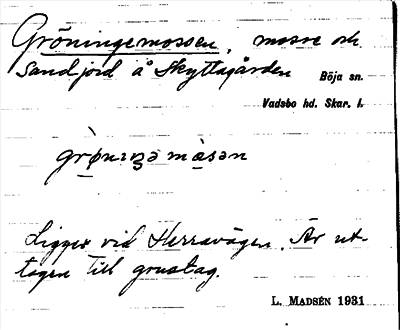 Gröningemossen, mosse och
Sandjord å Skyttagården Böja sn.
Vadsbo hd. Skar. l.
Ligger vid Herravägen. Är ut-
tagen till grustag.
L. MADSÉN 1931